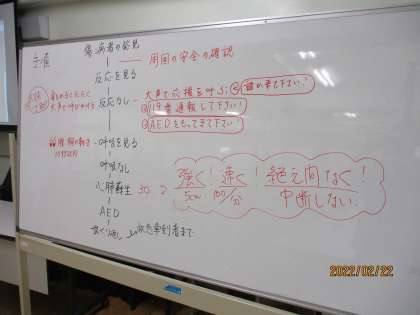 手順
傷病者の発見
周囲の安全の確認
反応を見る
反応なし
大声で応援を呼ぶ
① 誰か来て下さい!
② 119番通報して下さい!
③ AEDをもってきて下さい!
呼吸を見る
呼吸なし
心肺蘇生 30 2
強く! 速く! 絶え間なく!
5cm 100/分 中断しない
AED
救急車到着まで
2022/02/22